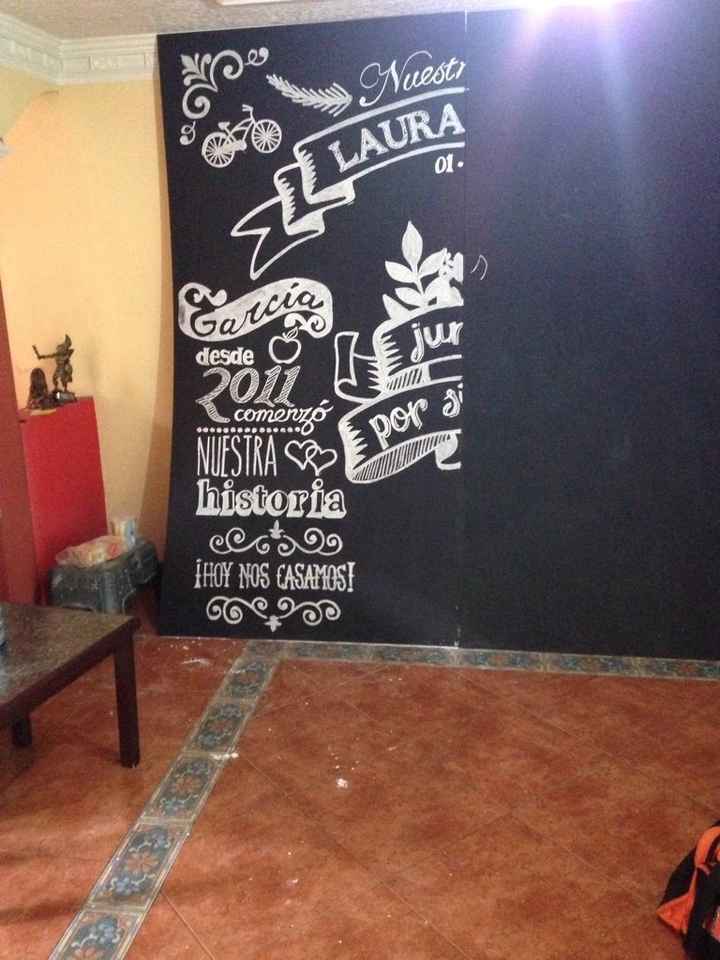 Nuestr
LAURA
01 ·
García
desde
2011
comenzó
NUESTRA
historia
¡HOY NOS CASAMOS!
jun
por si